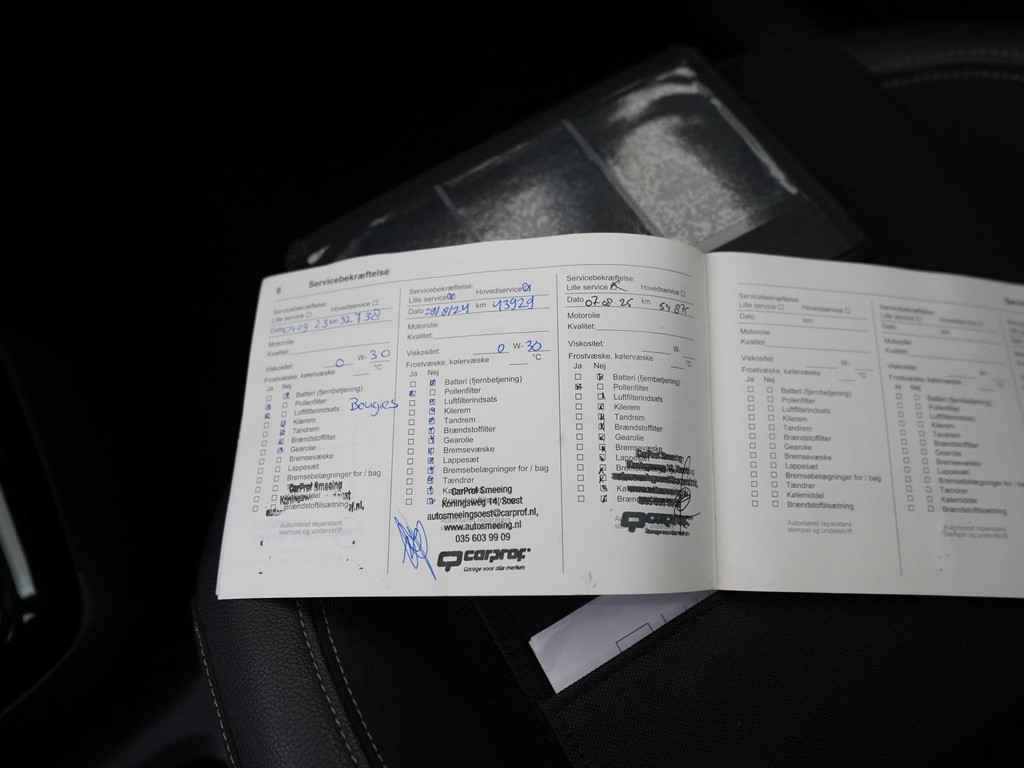 6 Servicebekræftelse
Servicebekræftelse:
Lille service Hovedservice
Dato
Motorolie
Kvalitet
Viskositet: 0 W- 30
Frostvæske, kølervæske °C
Ja Nej
Batteri (fjernbetjening)
Pollenfilter
Luftfilterindsats Bougies
Kilerem
Tandrem
Brændstoffilter
Gearolie
Bremsevæske
Lappesæt
Bremsebelægninger for / bag
CarProf Smeeing
Brændstofblæsning
Autoriseret reparatørs
stempel og underskrift
Servicebekræftelse:
Lille service Hovedservice
Dato 28/8/24 km 43929
Motorolie
Kvalitet:
Viskositet: 0 W- 30
Frostvæske, kølervæske °C
Ja Nej
Batteri (fjernbetjening)
Pollenfilter
Luftfilterindsats
Kilerem
Tandrem
Brændstoffilter
Gearolie
Bremsevæske
Lappesæt
Bremsebelægninger for / bag
Tændrør
CarProf Smeeing
Koningsweg 14, Soest
autosmeeingsoest@carprof.nl,
www.autosmeeing.nl
035 603 99 09
carprof
Garage voor alle merken
Servicebekræftelse:
Lille service Hovedservice
Dato 07.08.25 km 54875
Motorolie
Kvalitet:
Viskositet: W-
Frostvæske, kølervæske °C
Ja Nej
Batteri (fjernbetjening)
Pollenfilter
Luftfilterindsats
Kilerem
Tandrem
Brændstoffilter
Gearolie
Bremsevæske
carprof
Garage voor alle merken
Servicebekræftelse:
Lille service Hovedservice
Dato km
Motorolie
Kvalitet:
Viskositet: W-
Frostvæske, kølervæske °C
Ja Nej
Batteri (fjernbetjening)
Pollenfilter
Luftfilterindsats
Kilerem
Tandrem
Brændstoffilter
Gearolie
Bremsevæske
Lappesæt
Bremsebelægninger for / bag
Tændrør
Kølemiddel
Brændstofblæsning
Autoriseret reparatørs
stempel og underskrift
Servicebekræftelse:
Lille service Hovedservice
Dato km
Motorolie
Kvalitet:
Viskositet:
Frostvæske, kølervæske
Ja Nej
Batteri (fjernbetjening)
Pollenfilter
Luftfilterindsats
Kilerem
Tandrem
Brændstoffilter
Gearolie
Bremsevæske
Lappesæt
Bremsebelægninger for / bag
Tændrør
Kølemiddel
Brændstofblæsning
Autoriseret reparatørs
stempel og underskrift